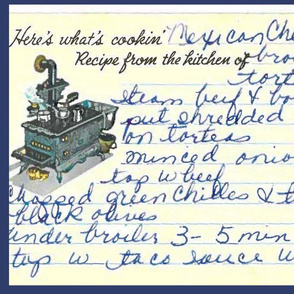 Here's what's cookin' Mexican Che
Recipe from the kitchen of bro
tort
steam beef & bo
put shredded
on torteas
minced onio
top w beef
chopped green chilles & t
black olives
under broiler 3-5 min
top w taco sauce w